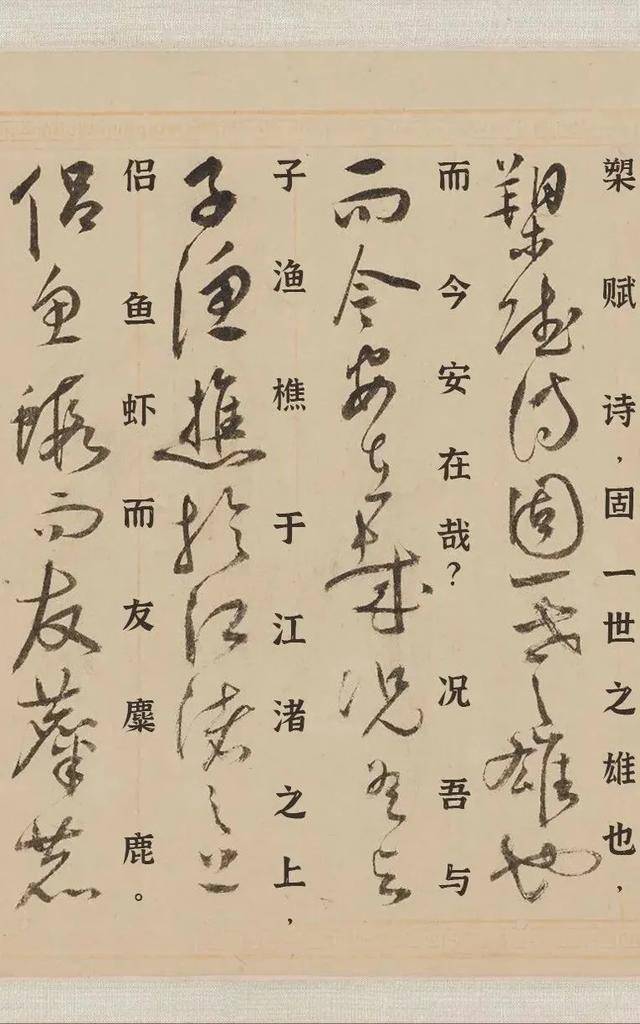 槊赋诗，固一世之雄也，
槊賦詩固一世之雄也
而今安在哉？况吾与
而今安在哉況吾与
子渔樵于江渚之上，
子漁樵於江渚之上
侣鱼虾而友麋鹿。
侶魚蝦而友麋鹿